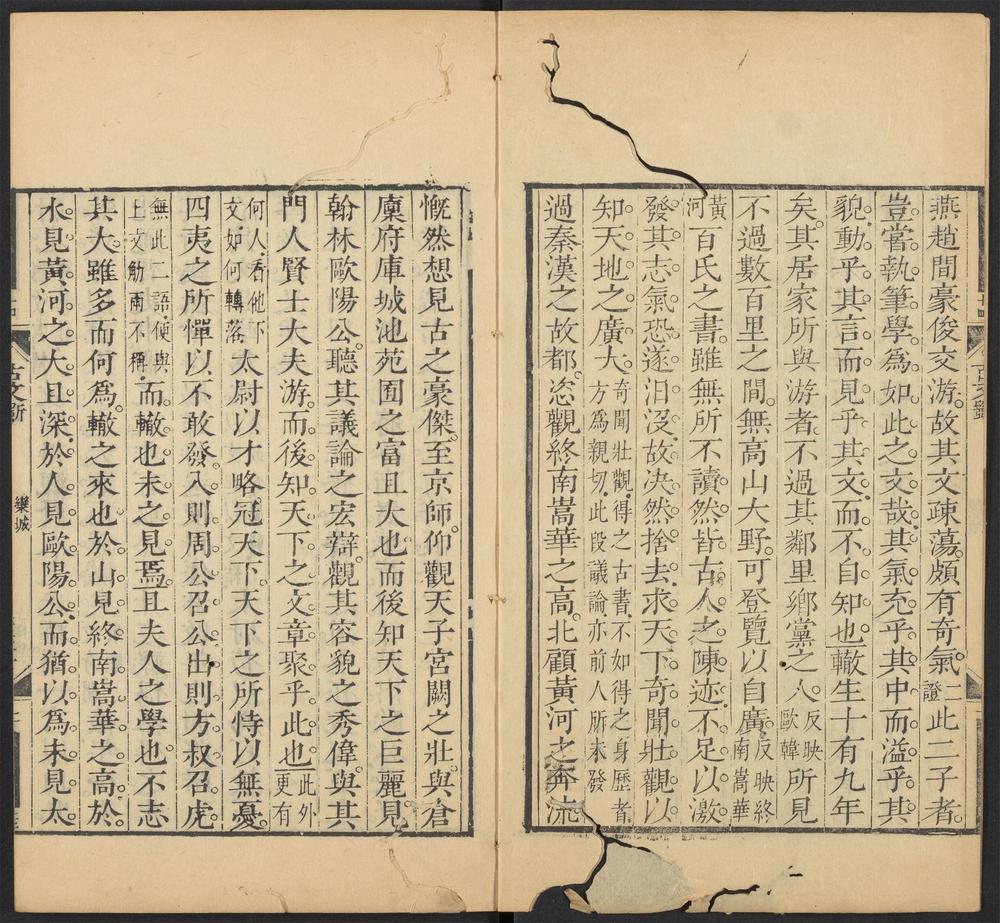 燕趙間豪俊交游故其文疎蕩頗有奇氣二證此二子者
豈嘗執筆學為如此之文哉其氣充乎其中而溢乎其
貌動乎其言而見乎其文而不自知也轍生十有九年
矣其居家所與游者不過其鄰里鄉黨之人反映歐韓所見
不過數百里之間無高山大野可登覽以自廣反映終南嵩華
黃河百氏之書雖無所不讀然皆古人之陳迹不足以激
發其志氣恐遂汩沒故決然捨去求天下奇聞壯觀以
知天地之廣大奇聞壯觀得之古書不如得之身歷者方為親切此段議論亦前人所未發
過秦漢之故都恣觀終南嵩華之高北顧黃河之奔流
慨然想見古之豪傑至京師仰觀天子宮闕之壯與倉
廩府庫城池苑囿之富且大也而後知天下之巨麗見
翰林歐陽公聽其議論之宏辯觀其容貌之秀偉與其
門人賢士大夫游而後知天下之文章聚乎此也此外更有
何人看他下文如何轉落太尉以才略冠天下天下之所恃以無憂
四夷之所憚以不敢發入則周公召公出則方叔召虎
無此二語便與上文觔兩不稱而轍也未之見焉且夫人之學也不志
其大雖多而何為轍之來也於山見終南嵩華之高於
水見黃河之大且深於人見歐陽公而猶以為未見太
欒城